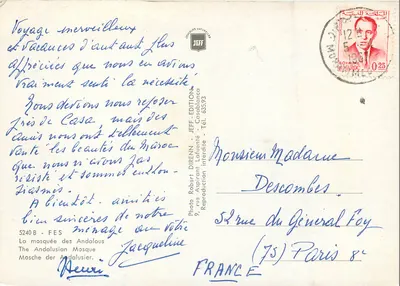 Voyage merveilleux
et vacances d'autant plus
appréciées que nous en avions
vraiment senti la nécessité.
Nous devions nous reposer
près de Casa, mais des
amis nous ont tellement
vanté les beautés du Maroc
que nous n'avons pas
résisté et sommes enthou-
siasmés.
A bientôt. amitiés
bien sincères de notre
ménage au vôtre
Jacqueline
Henri
5240 B - FES
La mosquée des Andalous
The Andalusian Mosque
Mosche der Andalusier.
JEFF
Photo Robert DIRENN - JEFF - EDITIONS
9, rue Aspirant Lafuente - Casablanca
Reproduction interdite - Tél.
12
5
0.25
Monsieur Madame
Descombes.
52 rue du Général Foy
(75) Paris 8e
FRANCE